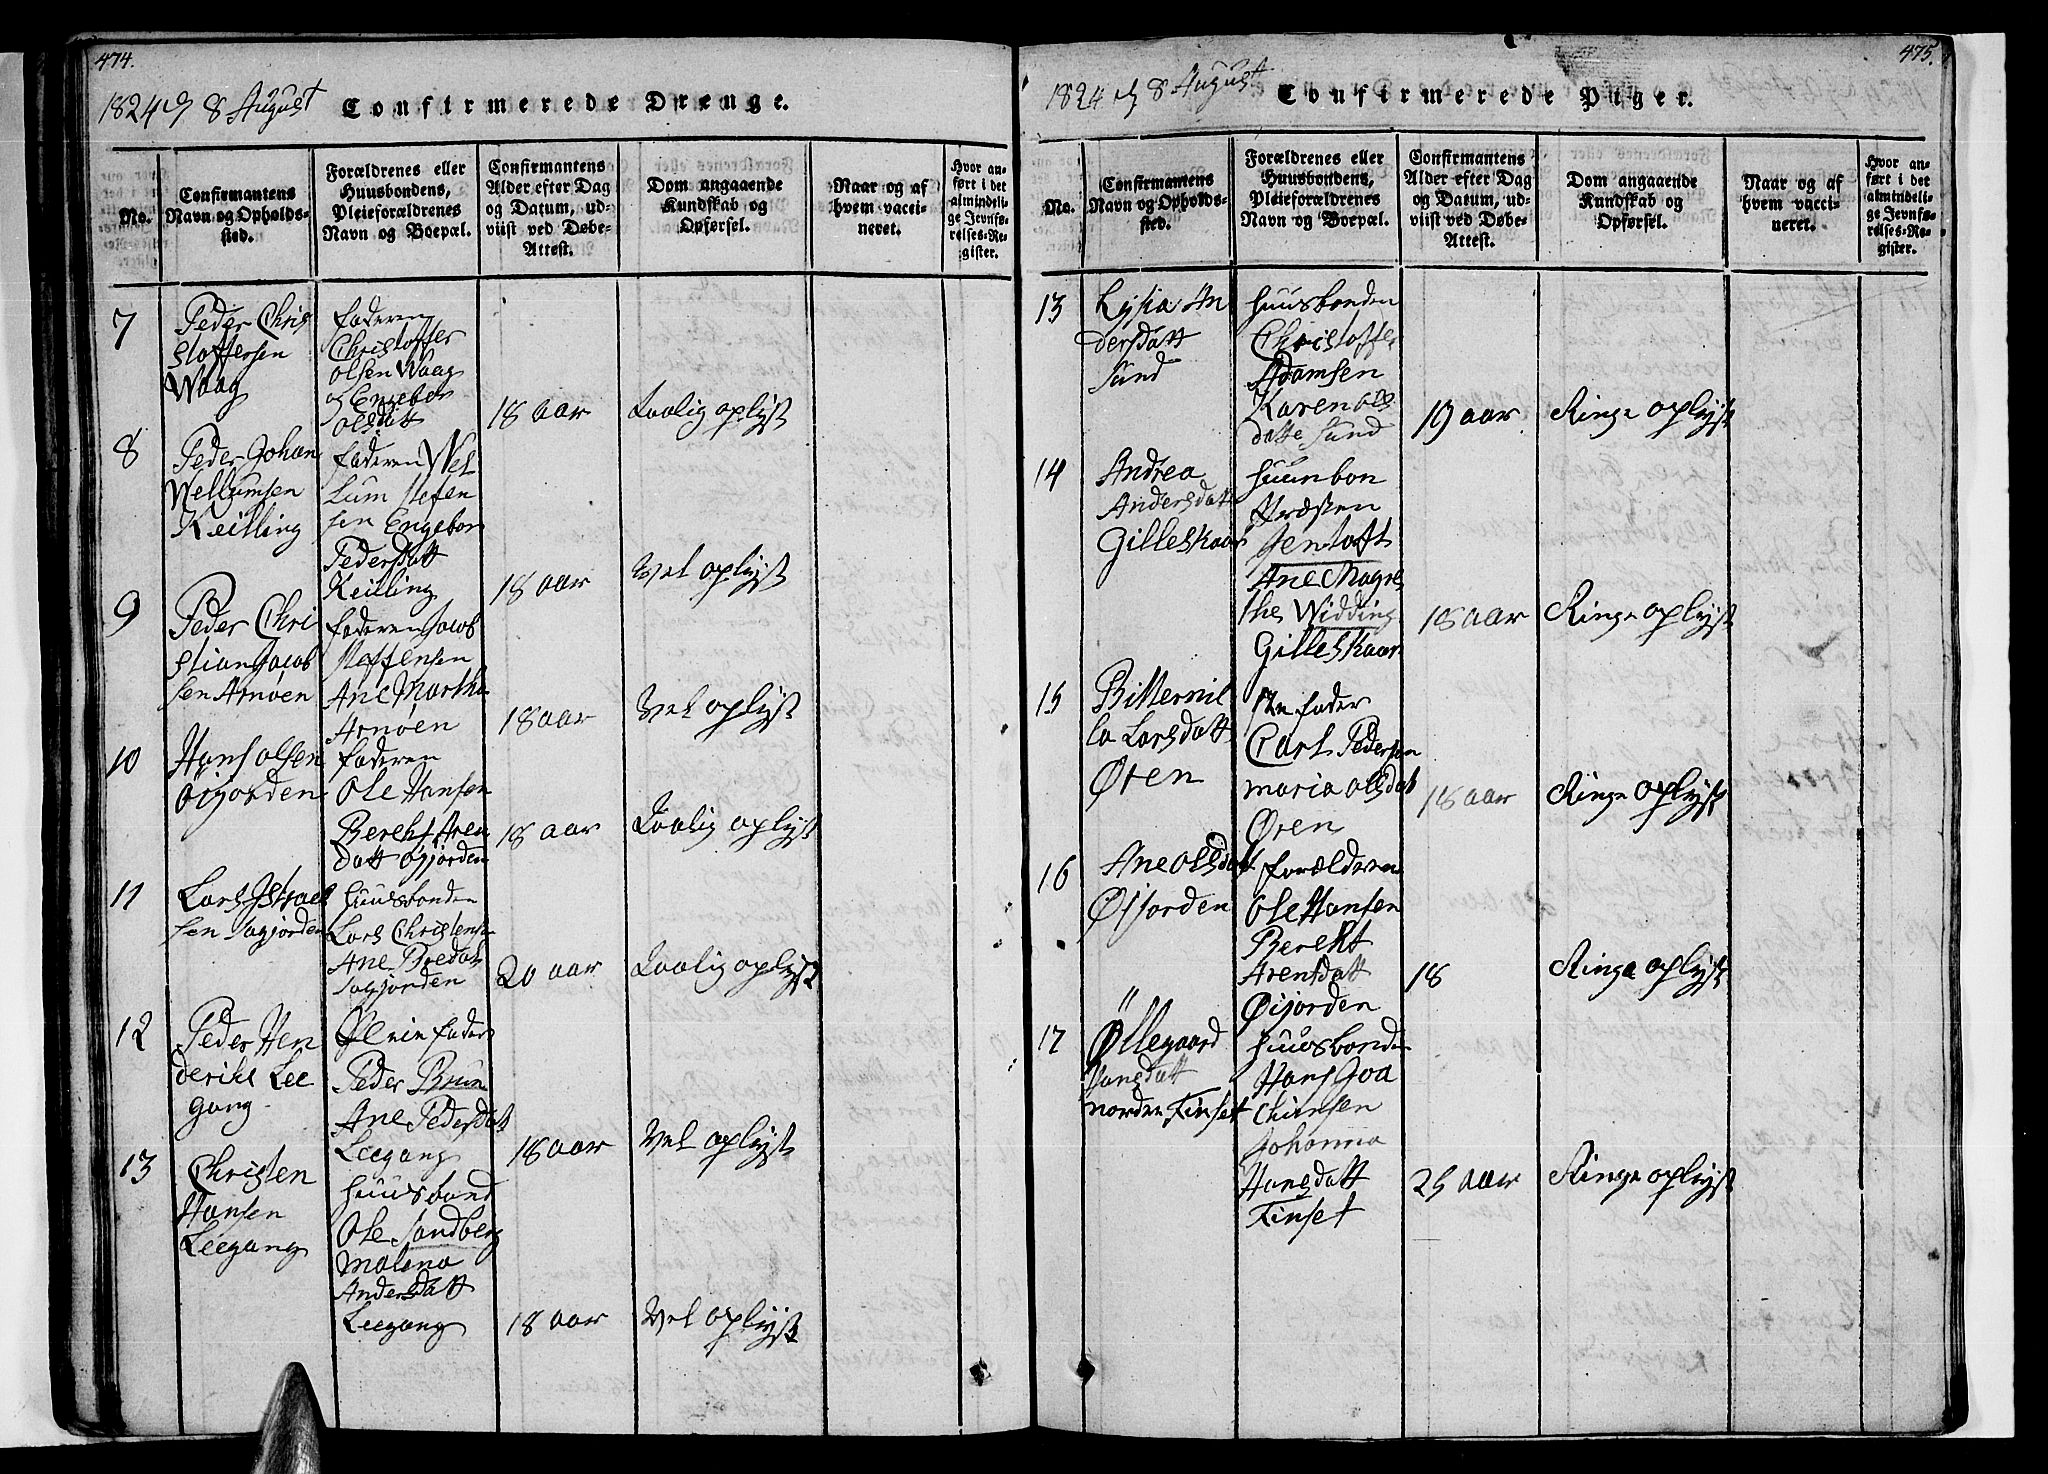 474.
1824 8 August Confirmerede Drenge.
No.
Confirmantens
Navn og Opholds-
sted.
Forældrenes eller
Huusbondens,
Pleieforældrenes
Navn og Boepæl.
Confirmantens
Alder efter Dag
og Datum, ud-
viist ved Døbe-
Attest.
Dom angaaende
Kundskab og
Opførsel.
Naar og af
hvem vacci-
neret.
Hvor an-
ført i det
almindeli-
ge Jevnfø-
relses-Re-
gister.
7
Peder Chris
stoffersen
Waag
faderen
Christoffer
Olsen Waag
og Engebor
Olsdatt
18 aar
Laalig oplyst
8
Peder Johan
Wellumsen
Keilling
faderen Wel
Lum Stefen
sen Engebor
Pedersdatt
Keilling
18 aar
Vel oplyst
9
Peder Chri
stian Jacob
sen Arnøen
faderen Jacob
Steffensen
Ane Martha
Arnøen
18 aar
Vel oplyst
10
Hans olsen
Øijorden
faderen
Ole Hansen
Berekt Aren
datt Øijorden
18 aar
Laalig oplyst
11
Lars Istrael
sen Sagjorden
huusbonden
Lars Christens
Ane Bredat
Sagjorden
20 aar
Laalig oplyst
12
Peder Hen
deriks Lee
gang
fader
Peder Brun
Ane Pedersdat
Leegang
18 aar
Vel oplyst
13
Christen
Hansen
Leegang
huusband
Ole Sandberg
Malena
Andersdatt
Leegang
18 aar
Vel oplyst
475.
1824 8 August Confirmerede Piger.
No.
Confirmantens
Navn og Opholds-
sted.
Forældrenes eller
Huusbondens,
Pleieforældrenes
Navn og Boepæl.
Confirmantens
Alder efter Dag
og Datum, ud-
viist ved Døbe-
Attest.
Dom angaaende
Kundskab og
Opførsel.
Naar og af
hvem vacci-
neret.
Hvor an-
ført i det
almindeli-
ge Jevnfø-
relses-Re-
gister.
13
Lysia An
dersdatt
Sund
huusbonden
Christoffer
Adamsen
Karen Ols
datte Sund
19 aar
Ringe oplyst
14
Andrea
Andersdatt
Gilleskaar
huunbon
Præsten
Jentoft
Ane Magre
the Widding
Gilleskaar
18 aar
Ringe oplyst
15
Bitternil
la Larsdatt
Øren
fader
Carl Pedersen
maria olsdat
Øren
18 aar
Ringe oplyst
16
Ane Olsdatt
Øijorden
forælderen
Ole Hansen
Berekt
Arensdatt
Øijorden
18
Ringe oplyst
17
Øllegaard
Hansdatt
norden Finset
huusbonden
Hans Joa
chimsen
Johanna
Hansdatt
Finset
25 aar
Ringe oplyst